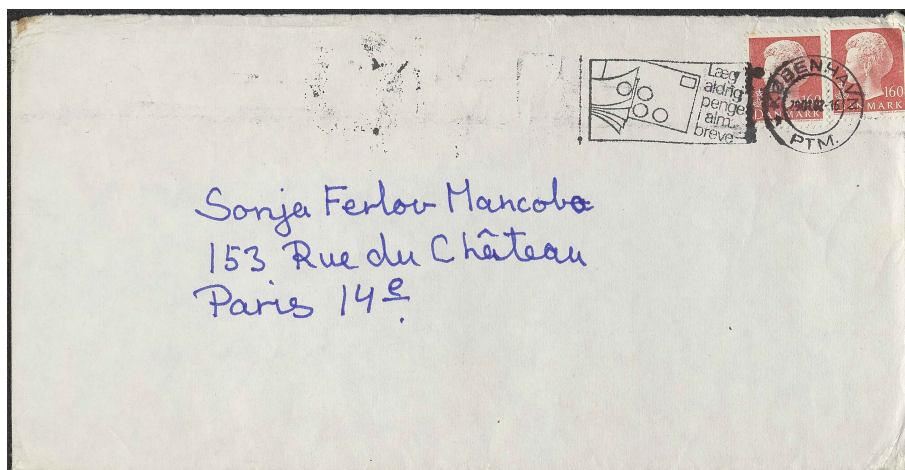 Læg
aldrig
penge
alm.
breve
KØBENHAVN
PTM.
160
DANMARK
160
DANMARK
Sonja Ferlov Mancoba
153 Rue du Château
Paris 14e